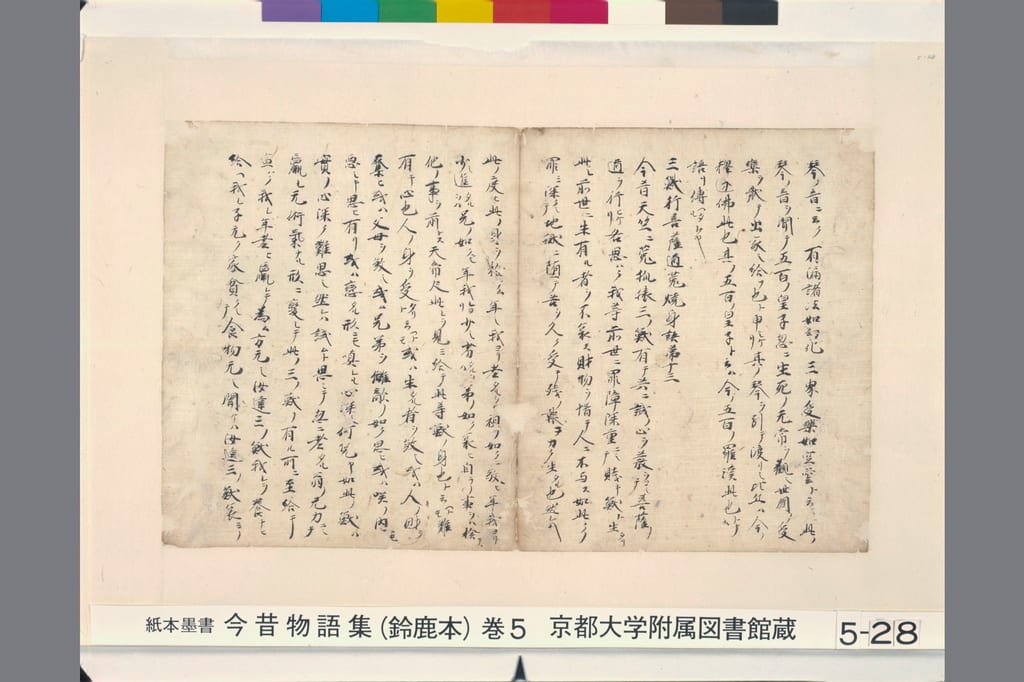 琴ノ音ニ云ク有漏諸法如幻化三界受樂如空雲ト云ヘリ此ノ
琴ノ音ヲ聞テ五百ノ皇子忽ニ生死ノ无常ヲ觀シ世間ノ受
樂ヲ
出家シ給
申ケリ其ノ琴ヲ引テ渡リシ
今ノ
佛此也其ノ五百ノ皇子ト云ハ今ノ五百ノ羅漢此也トナム
語リ傳ヘタルトヤ
三獣行菩薩道菟燒身語第十三
今昔天竺ニ菟狐猨三ノ獣有テ共ニ誠ノ心ヲ發シテ菩薩ノ
道ヲ行ヒケリ各思ハク我等前世ニ罪障深重ニシテ賤キ獣ト生タリ
此レ前世ニ生有ル者ヲ不哀ス財物ヲ惜テ人ニ不与ス如此クノ
罪ミ深クシテ地獄ニ堕テ苦ヲ久ク受テ残ノ報ニカク生レタル也然レハ
此ノ度ヒ此ノ身ヲ
年シ我ヨリ老タルヲハ祖ノ如クニ敬ヒ年我ヨリ
少進タルヲハ兄ノ如クニシ年我ヨリ少シ劣タルヲハ弟ノ如ク哀ヒ自ラノ事ヲハ捨テ
他ノ事ヲ前トス天帝尺此レヲ見給テ此等獣ノ身也ト云ヘトモ難
有キ心也人ノ身ヲ受タリト云ヘトモ或ハ生タル者ヲ敓シ或ハ人ノ財ヲ
奪ヒ或ハ父母ヲ敓シ或ハ兄弟ヲ讎敵ノ如ク思ヒ或ハ咲ノ内ニモ
悪シキ思ヒ有リ或ハ戀タル形ニモ
心深シ何况ヤ如此ノ獣ハ
實ノ心深ク難思シ然レハ試ムト思シテ忽ニ老タル翁ノ无力ニシテ
羸レ无術氣ナル形ニ變シテ此ノ三ノ獣ノ有ル所ニ至給テ
宣ハク我レ年老ヒ羸レテ為ム方无シ汝達三ノ獣我レヲ養ヒ
給ヘ我レ子无ク家貧クシテ食物无シ聞ケハ汝達三ノ獣哀ミノ
紙本墨書 今昔物語集(鈴鹿本) 巻5 京都大学附属図書館蔵
5-28